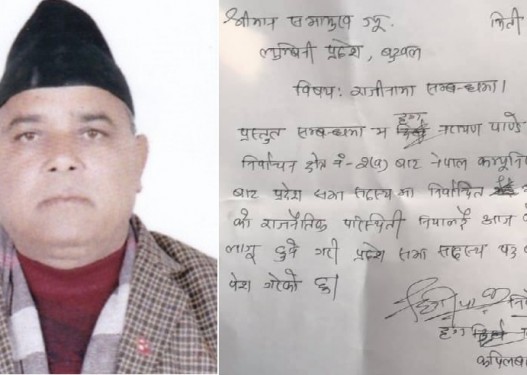 श्रीमान सभामुख ज्यू. मिती
लुम्बिनी प्रदेश, बुटवल
विषय: राजीनामा सम्बन्धमा।
प्रस्तुत सम्बन्धमा म नारायण पाण्डे
निर्वाचन क्षेत्र नं-२(ख) बाट नेपाल कम्युनि
बाट प्रदेश सभा सदस्यमा निर्वाचित
को राजनैतिक परिस्थिती नियाल्दै आज
लागू हुने गरी प्रदेश सभा सदस्य पद
पेश गरेको छु।
कपिलब